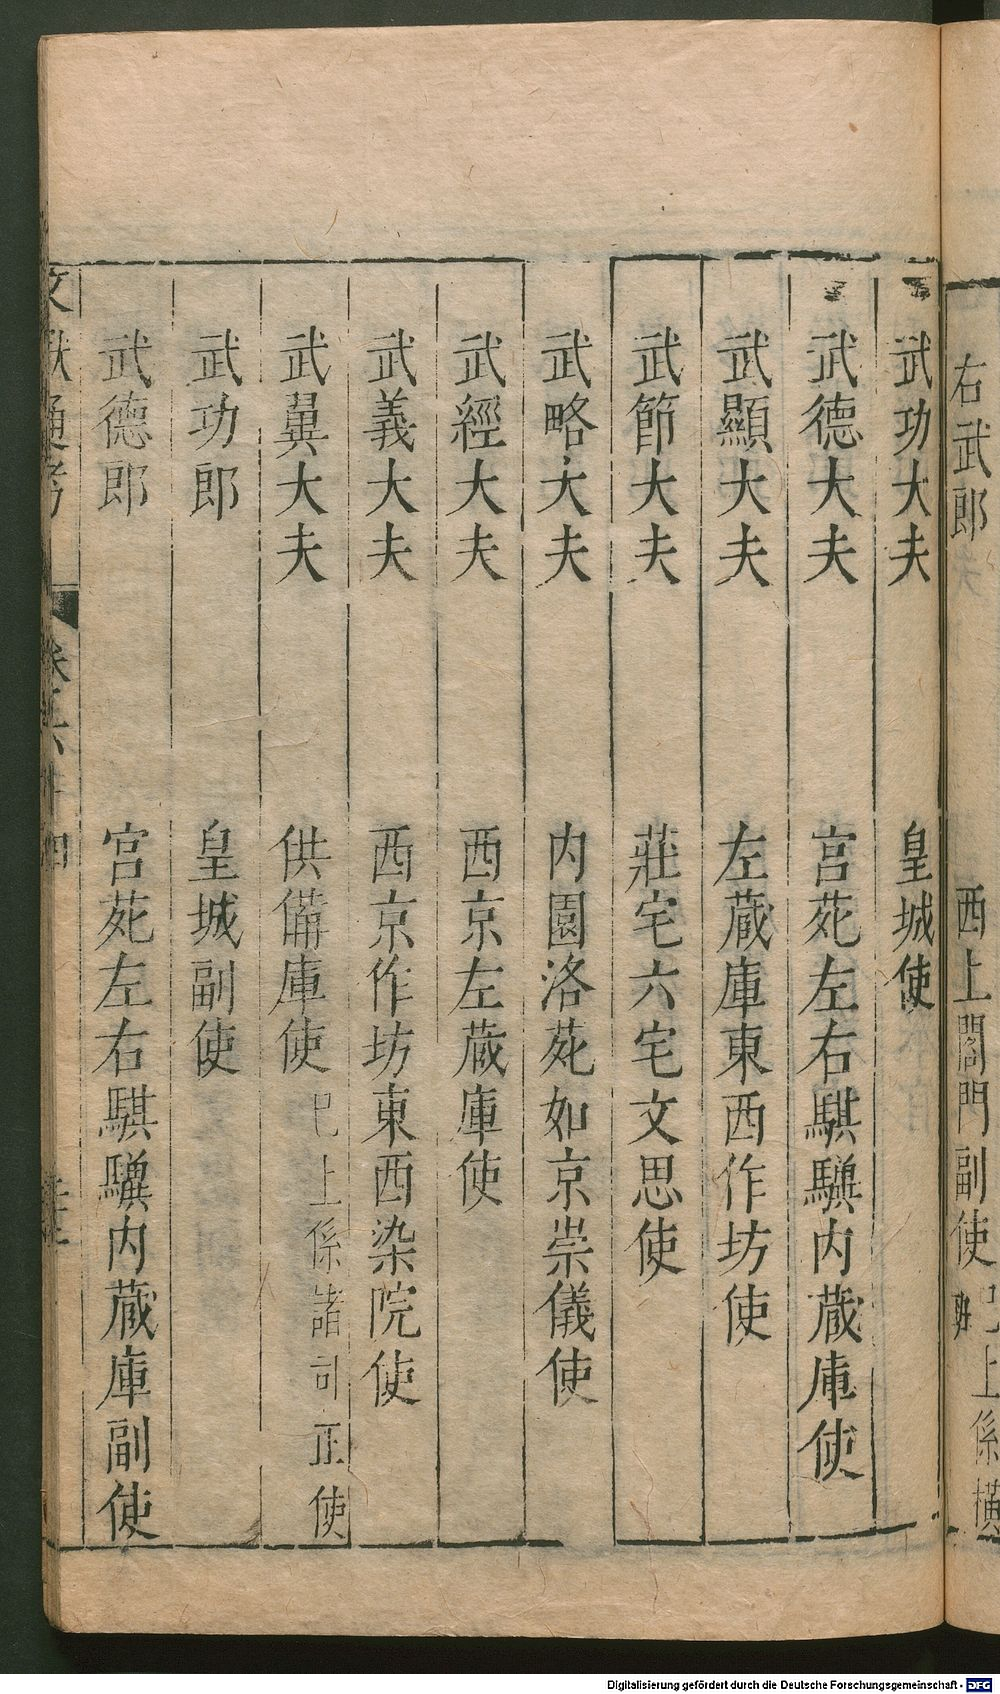 右武郎 西上閤門副使 已上係橫班
武功大夫 皇城使
武德大夫 宫苑左右騏驥内蔵庫使
武顯大夫 左蔵庫東西作坊使
武節大夫 莊宅六宅文思使
武略大夫 内園洛苑如京崇儀使
武經大夫 西京左蔵庫使
武義大夫 西京作坊東西染院使
武翼大夫 供備庫使 已上係諸司正使
武功郎 皇城副使
武德郎 宫苑左右騏驥内蔵庫副使
文獻通考
Digitalisierung gefördert durch die Deutsche Forschungsgemeinschaft - DFG